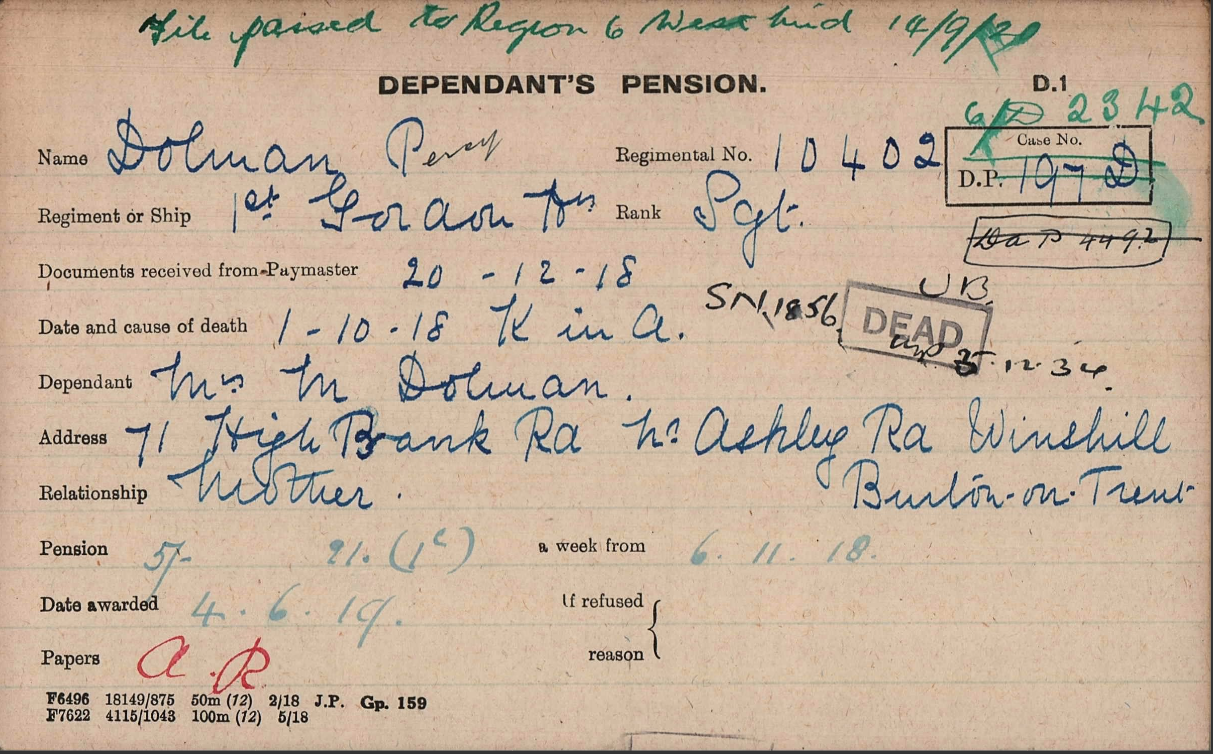 File passed to Region 6 West Mid 14/9/20
DEPENDANT'S PENSION. D.1
6/D 2342
Name Dolman Percy Regimental No. 10402 Case No.
D.P. 197 D
Regiment or Ship 1st Gordon Hrs Rank Sgt.
4492
Documents received from Paymaster 20-12-18
UB.
Date and cause of death 1-10-18 K in A. SN.1856. DEAD
5.12.34.
Dependant Mrs M Dolman.
Address 71 High Bank Rd Nr Ashley Rd Winshill
Relationship Mother. Burton-on-Trent
Pension 5/- 21. (1c) a week from 6. 11. 18.
Date awarded 4. 6. 19. If refused
Papers A.R reason
F6496 18149/875 50m (12) 2/18 J.P. Gp. 159
F7622 4115/1043 100m (12) 5/18